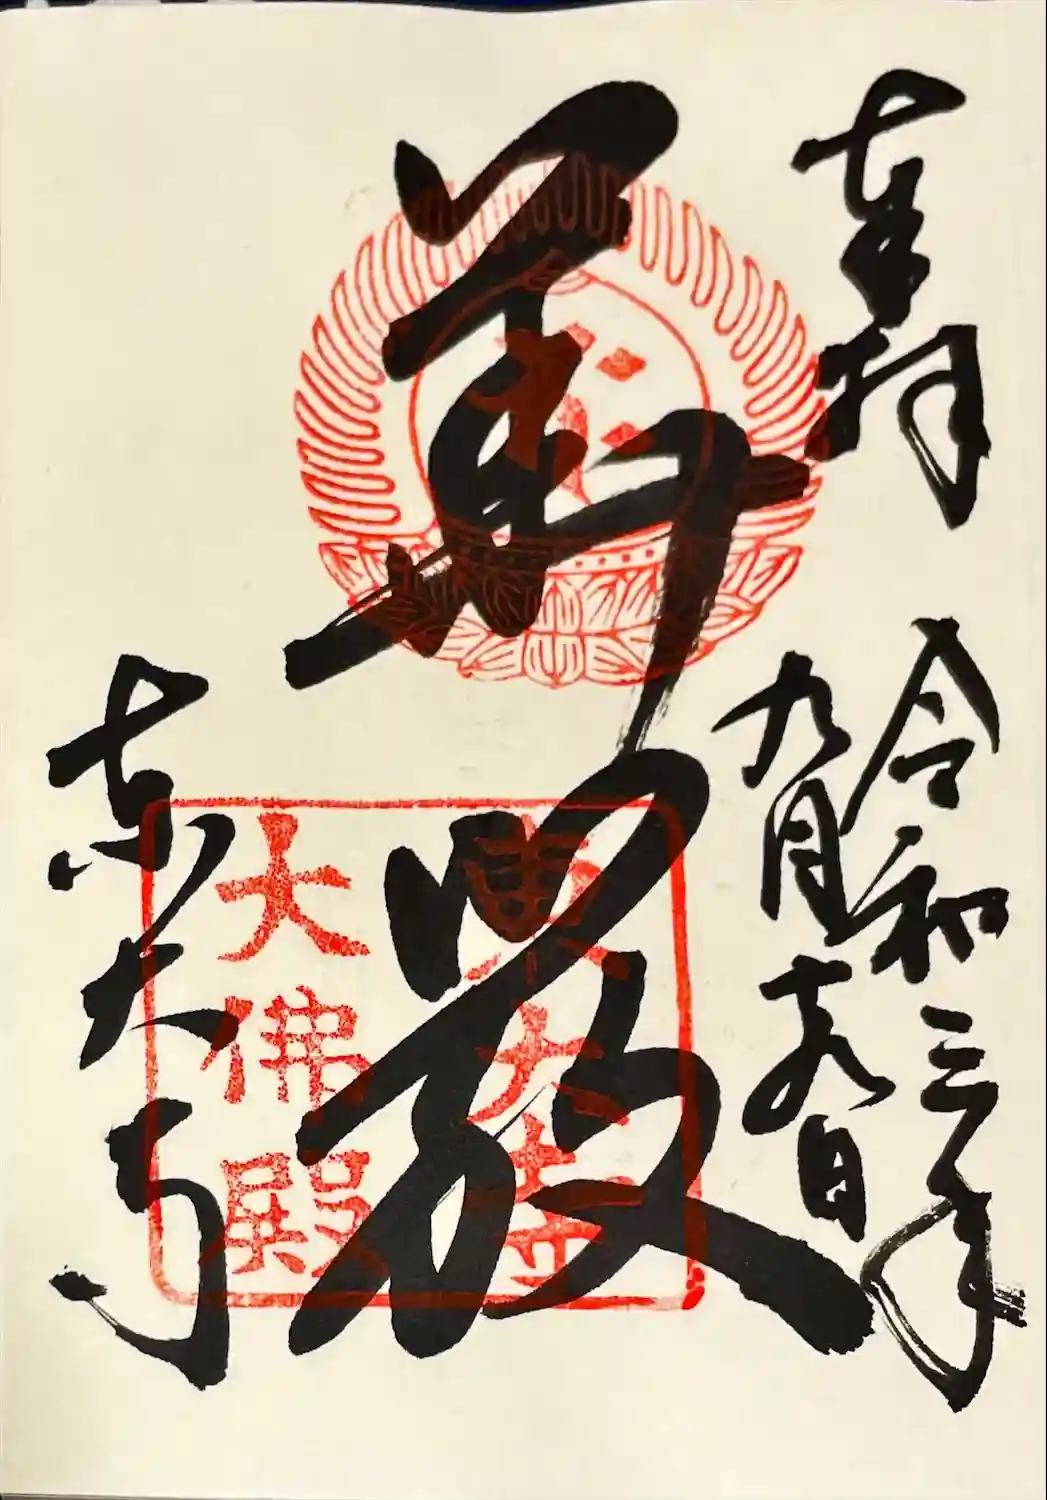 奉拝
令和三年
九月十九日
華厳
東大寺
東大寺
大佛殿